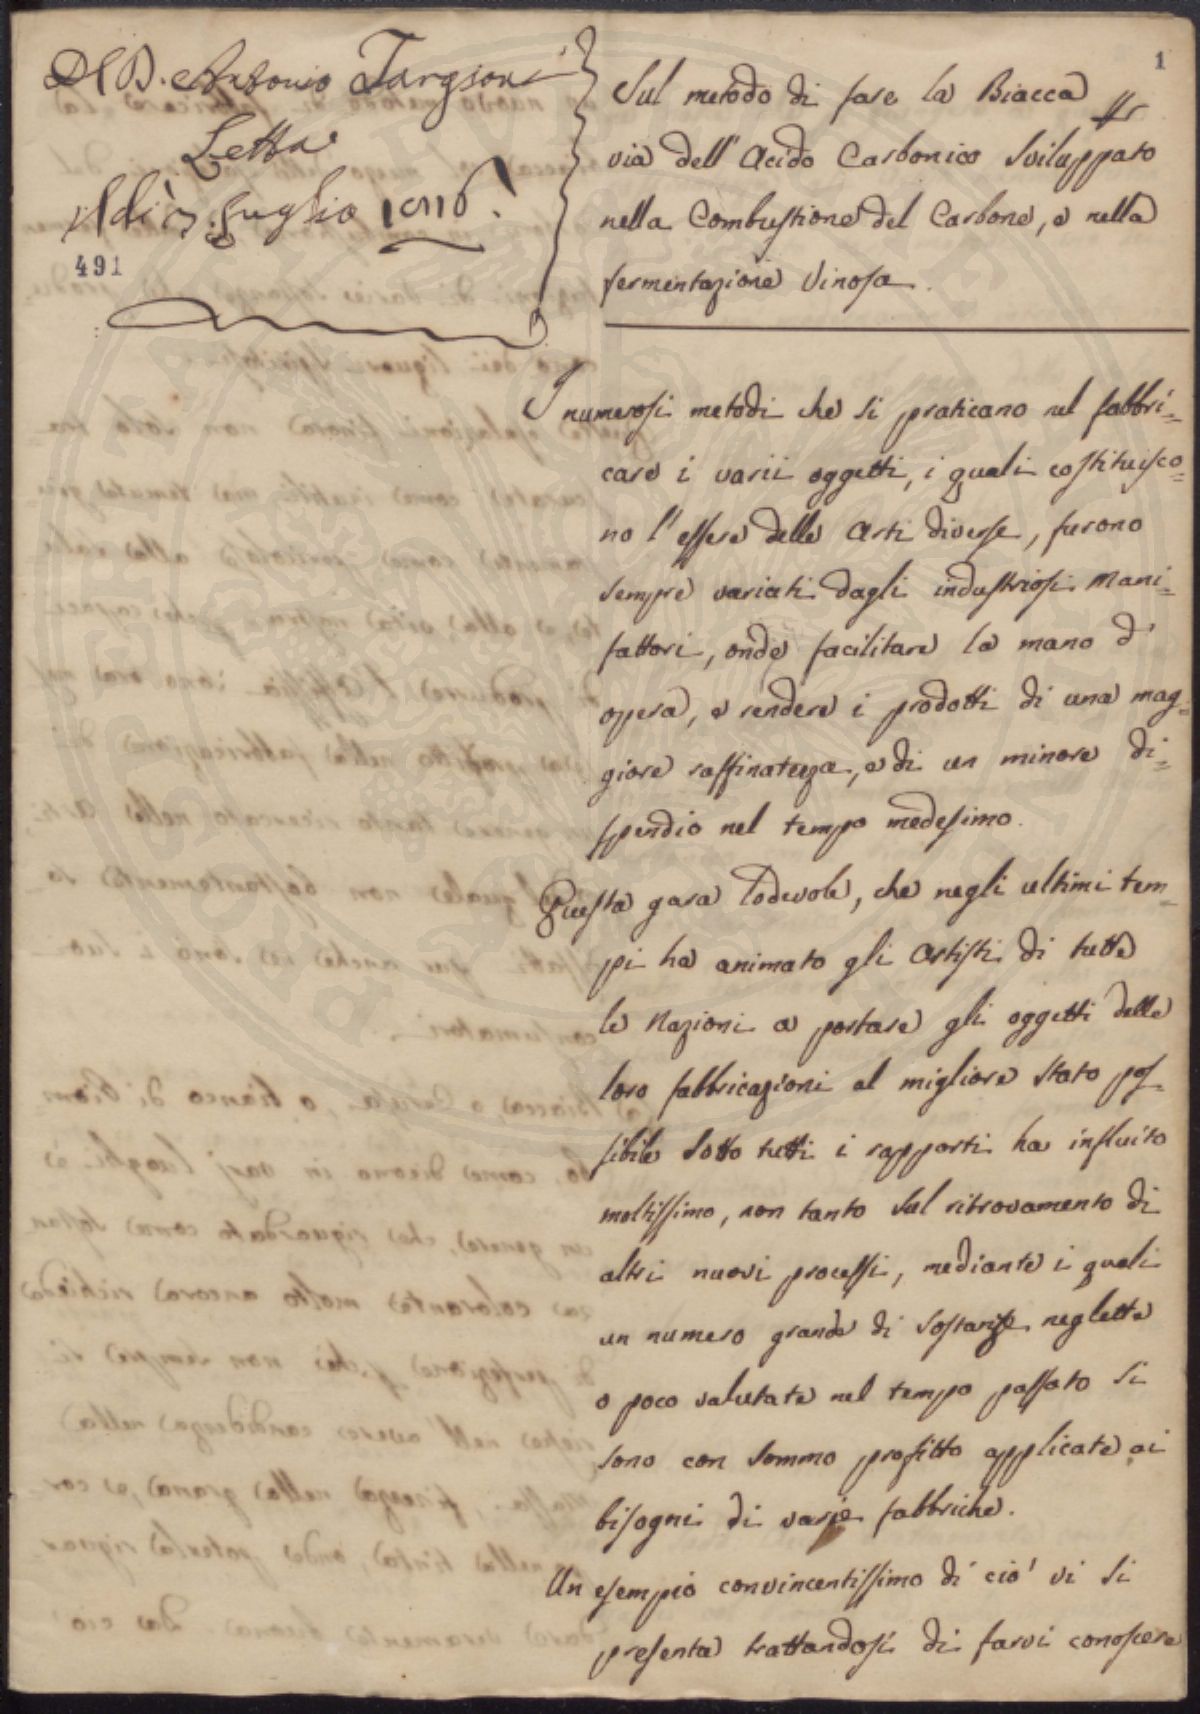 Del D. Antonio Targioni
Letta
il dì 3. Luglio 1816.
491
1
Sul metodo di fare la Biacca
via dell' Acido Carbonico Sviluppato
nella Combustione del Carbone, e nella
fermentazione Vinosa.
I numerosi metodi che si praticano nel fabbri=
care i varii oggetti, i quali costituisco=
no l'essere delle Arti diverse, furono
sempre variati dagli industriosi Mani=
fattori, onde facilitare la mano d'
opera, e rendere i prodotti di una mag=
giore raffinatezza, e di un minore di=
spendio nel tempo medesimo.
Questa gara lodevole, che negli ultimi tem=
pi ha animato gli Artisti di tutte
le Nazioni a portare gli oggetti delle
loro fabbricazioni al migliore stato pos=
sibile sotto tutti i rapporti ha influito
moltissimo, non tanto sul ritrovamento di
altri nuovi processi, mediante i quali
un numero grande di sostanze neglette
o poco valutate nel tempo passato si
sono con sommo profitto applicate ai
bisogni di varie fabbriche.
Un esempio convincentissimo di ciò vi si
presenta trattandosi di farvi conoscere